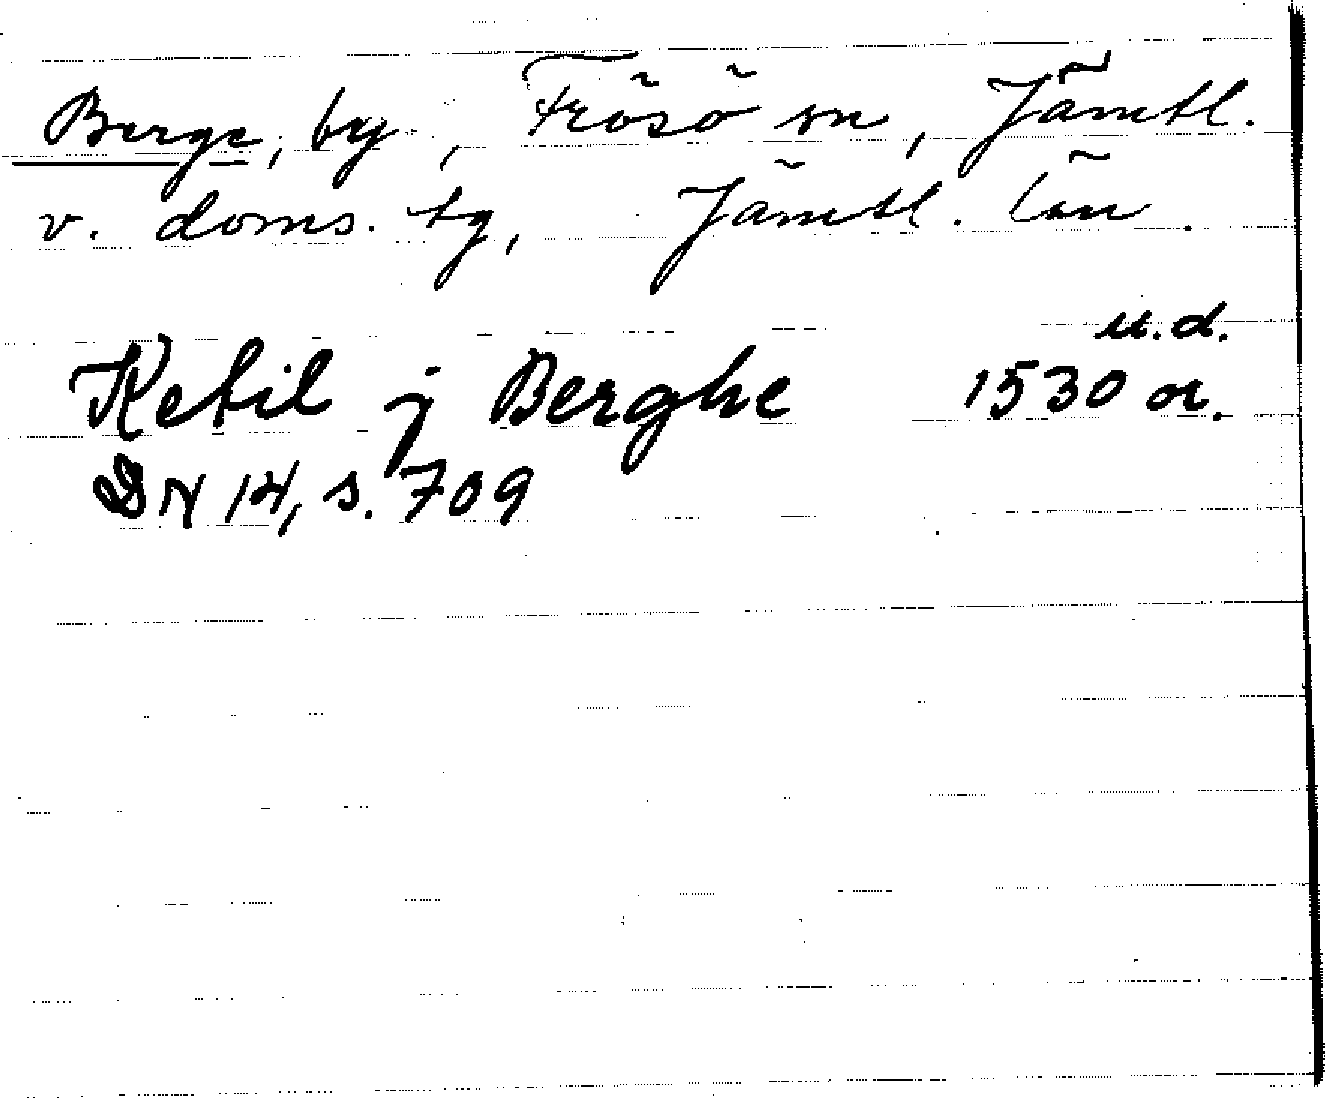 Berge, by, Frösö sn, Jämtl.
v. doms. tg, Jämtl. län.
u.d.
Ketil j Berghe 1530 or.
DN 14, s. 709